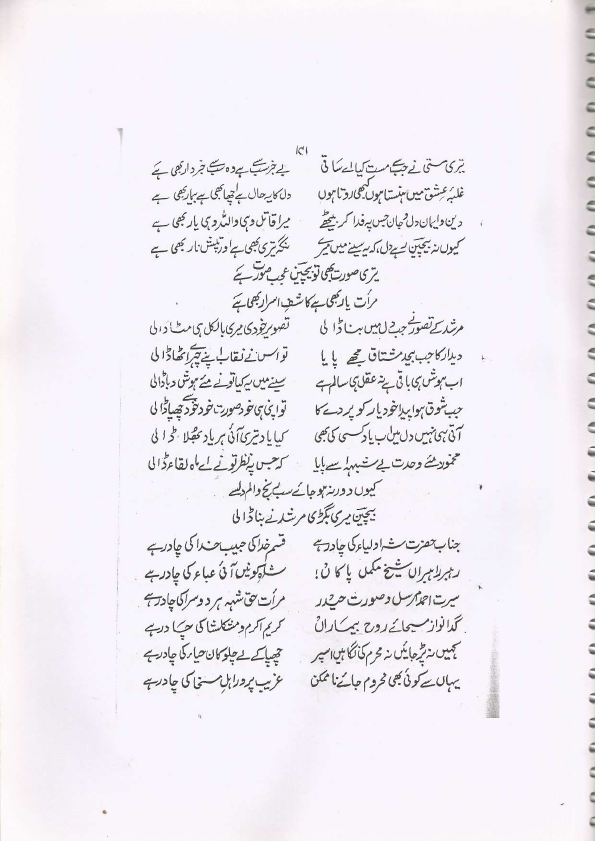 ۱۴۱
تیری مستی نے جسے مست کیا اے ساقی بے خبر سب سے ہے وہ سب سے خبردار بھی ہے
غلبۂ عشق میں ہنستا ہوں کبھی روتا ہوں دل کا یہ حال ہے اچھا بھی ہے بیمار بھی ہے
دین و ایمان دل و جان جس پہ فدا کر بیٹھے میرا قاتل وہی واللہ وہی یار بھی ہے
کیوں نہ بیچین رہے دل، کہ یہ سینے میں میرے تیری بھی ہے اور تپش نار بھی ہے
تیری صورت بھی تو بیچین عجب صورت ہے
مرأت یار بھی ہے کاشف اسرار بھی ہے
مرشد کے تصور نے جب دل میں بنا ڈالی تصویر خودی میری بالکل ہی مٹا ڈالی
دیدار کا جب بیحد مشتاق مجھے پایا تو اس نے نقاب اپنے چہرے سے اٹھا ڈالی
اب ہوش ہی باقی ہے نہ عقل ہی سالم ہے سینے میں یہ کیا تو نے مئے ہوش ربا ڈالی
جب شوق ہوا پیدا خود یار کو پردے کا تو اپنی ہی خود صورت خود خود سے چھپا ڈالی
آتی ہی نہیں دل میں اب یاد کسی کی بھی کیا یاد تیری آئی ہر یاد بھلا ڈالی
مخمور مئے وحدت بے شبہہ اسے پایا کہ جس پہ نظر تو نے اے ماہ لقاء ڈالی
کیوں دور نہ ہو جائے سب رنج و الم دل سے
بیچین میری بگڑی مرشد نے بنا ڈالی
جناب حضرت شاہ اولیاء کی چادر ہے قسم خدا کی حبیب خدا کی چادر ہے
رہبر راہبراں شیخ مکمل پاکاں! شاہ کونین آئی عباء کی چادر ہے
سیرت احمد مرسل و صورت حیدر مرأت حق شہہ ہر دوسرا کی چادر ہے
گدا نواز مسیحائے روح بیماراں کریم اکرم و مشکلکشا کی چادر ہے
کہیں نہ پڑ جائیں نہ محرم کی نگاہیں اسپر چھپا کے لے چلو کان حیاء کی چادر ہے
یہاں سے کوئی بھی محروم جائے ناممکن غریب پرور و اہل سخا کی چادر ہے